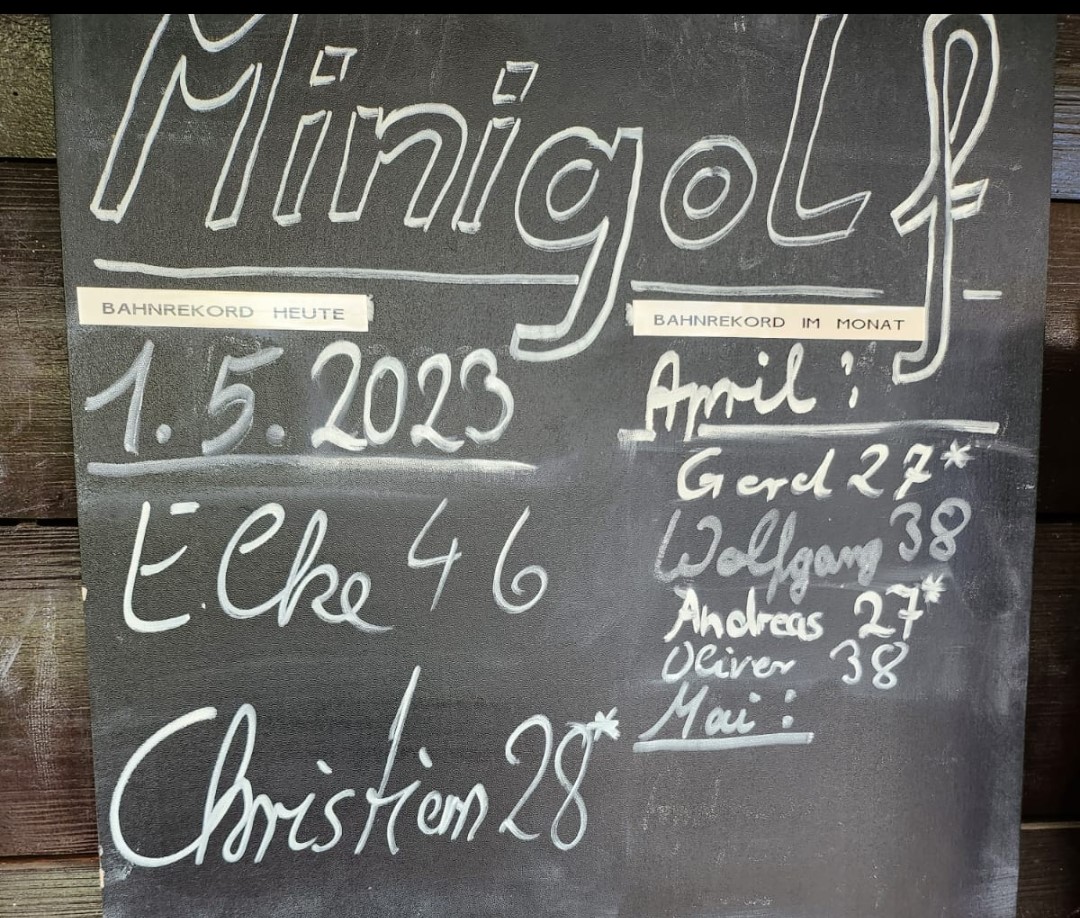 Minigolf
BAHNREKORD HEUTE
1.5.2023
Elke 46
Christian 28*
BAHNREKORD IM MONAT
April:
Gerd 27*
Wolfgang 38
Andreas 27*
Oliver 38
Mai: